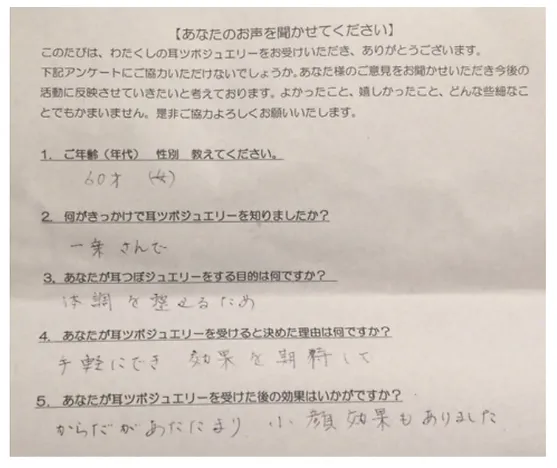 【あなたのお声を聞かせてください】
このたびは、わたくしの耳ツボジュエリーをお受けいただき、ありがとうございます。
下記アンケートにご協力いただけないでしょうか。あなた様のご意見をお聞かせいただき今後の
活動に反映させていきたいと考えております。よかったこと、嬉しかったこと、どんな些細なこ
とでもかまいません。是非ご協力よろしくお願いいたします。
1．ご年齢（年代）　性別　教えてください。
60才　(女)
2．何がきっかけで耳ツボジュエリーを知りましたか？
一条 さんで
3．あなたが耳つぼジュエリーをする目的は何ですか？
体調を整えるため
4．あなたが耳ツボジュエリーを受けると決めた理由は何ですか？
手軽にでき 効果を期待して
5．あなたが耳ツボジュエリーを受けた後の効果はいかがですか？
からだがあたたまり 小顔効果もありました